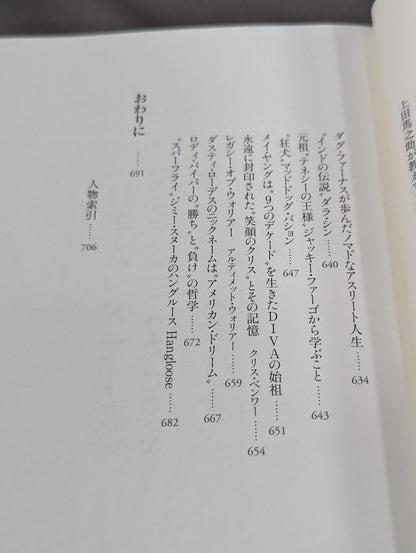 上田馬之助が教え
ダグ・ファーナスが歩んだノマドなアスリート人生 …… 634
“インドの伝説”ダラ・シン …… 640
元祖“テネシーの王様”ジャッキー・ファーゴから学ぶこと …… 643
“狂犬”マッドドッグ・バション …… 647
メイ・ヤングは“9つのデケード”を生きたDIVAの始祖 …… 651
永遠に封印された“笑顔のクリス”とその記憶 クリス・ベンワー …… 654
レガシー・オブ・ウォリアー アルティメット・ウォリアー …… 659
ダスティ・ローデスのニックネームは“アメリカン・ドリーム” …… 667
ロディ・パイパーの“勝ち”と“負け”の哲学 …… 672
“スーパーフライ”ジミー・スヌーカのハングルース Hangloose …… 682
おわりに …… 691
人物索引 …… 706